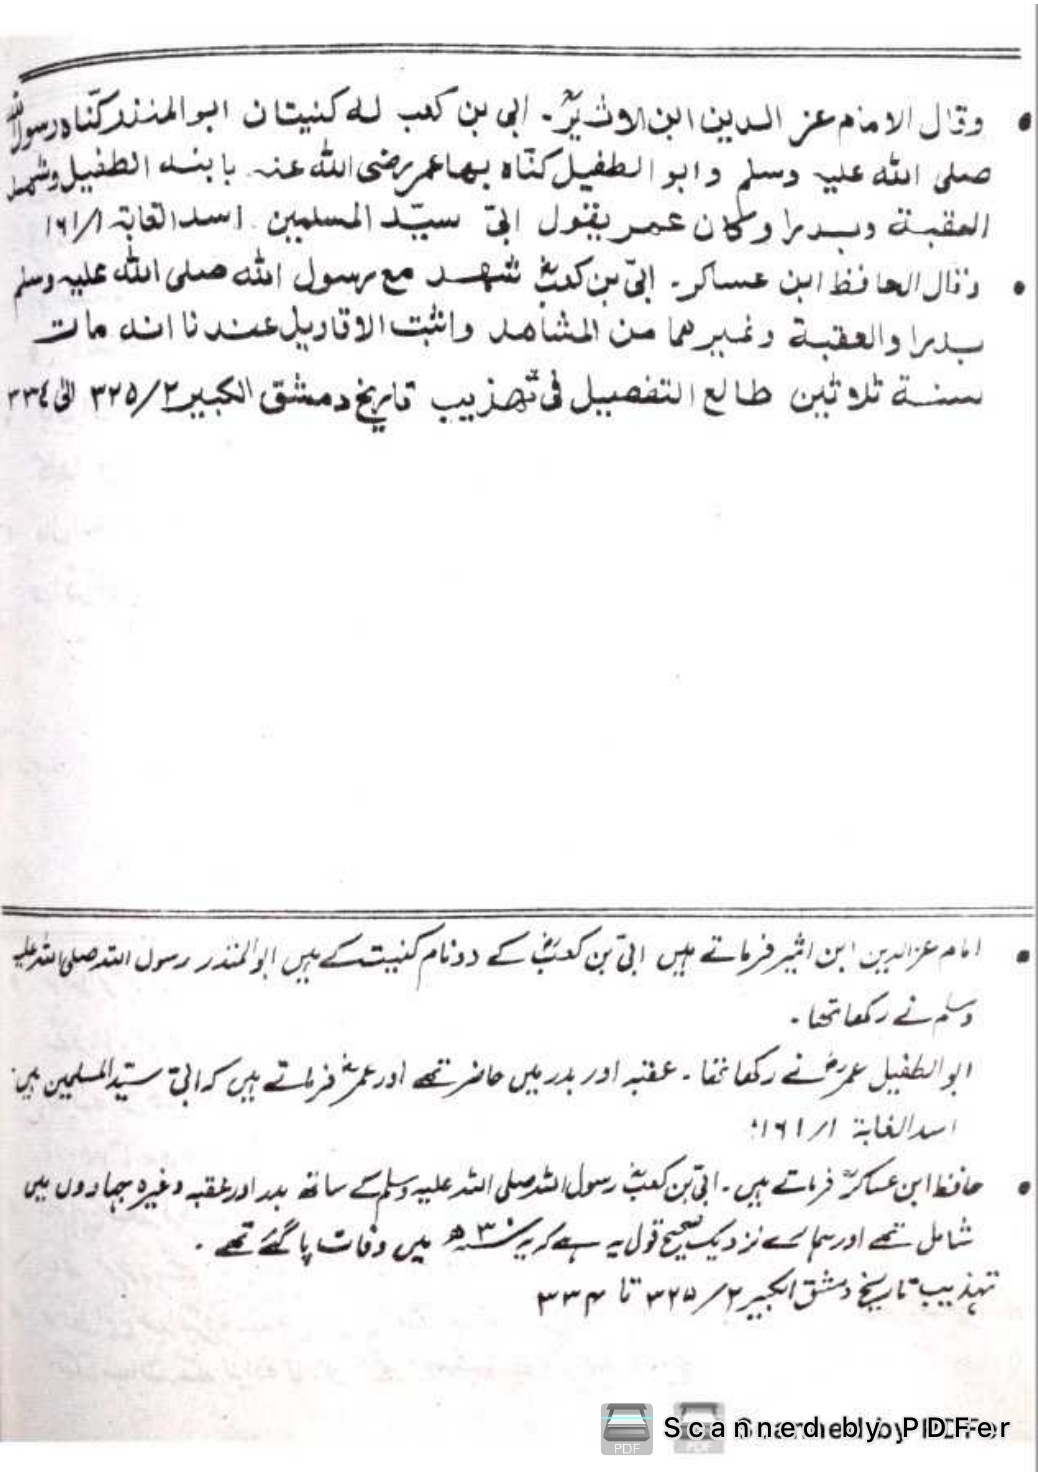 • وقال الامام عز الدين ابن الاثيرؒ۔ ابي بن كعب له كنيتان ابو المنذر كنّاه رسول الله
صلى الله عليه وسلم وابو الطفيل كنّاه بها عمر رضى الله عنه بابنه الطفيل وشهد
العقبة وبدرا وكان عمر يقول ابيّ سيّد المسلمين اسد الغابة ۱/۱٦۱
• وقال الحافظ ابن عساكر۔ ابيّ بن كعبؓ شهد مع رسول الله صلى الله عليه وسلم
بدرا والعقبة وغيرهما من المشاهد واثبت الاقاويل عندنا انه مات
سنة ثلاثين طالع التفصيل فى تهذيب تاريخ دمشق الكبير ۲/۳۲۵ الى ۳۳٤
• امام عزالدین ابن اثیر فرماتے ہیں ابیّ بن کعبؓ کے دو نام کنیت کے ہیں ابوالمنذر رسول اللہ صلی اللہ علیہ
وسلم نے رکھا تھا ۔
ابوالطفیل عمرؓ نے رکھا تھا ۔ عقبہ اور بدر میں حاضر تھے اور عمرؓ فرماتے ہیں کہ ابیّ سیّد المسلمین ہیں
اسد الغابة ۱/۱۶۱
• حافظ ابن عساکرؒ فرماتے ہیں ۔ ابیّ بن کعبؓ رسول اللہ صلی اللہ علیہ وسلم کے ساتھ بدر اور عقبہ وغیرہ جہادوں میں
شامل تھے اور ہمارے نزدیک صحیح قول یہ ہے کہ یہ سنہ ۳۰ھ میں وفات پا گئے تھے ۔
تہذیب تاریخ دمشق الکبیر ۲/۳۲۵ تا ۳۳۴
Scanned by PDFer